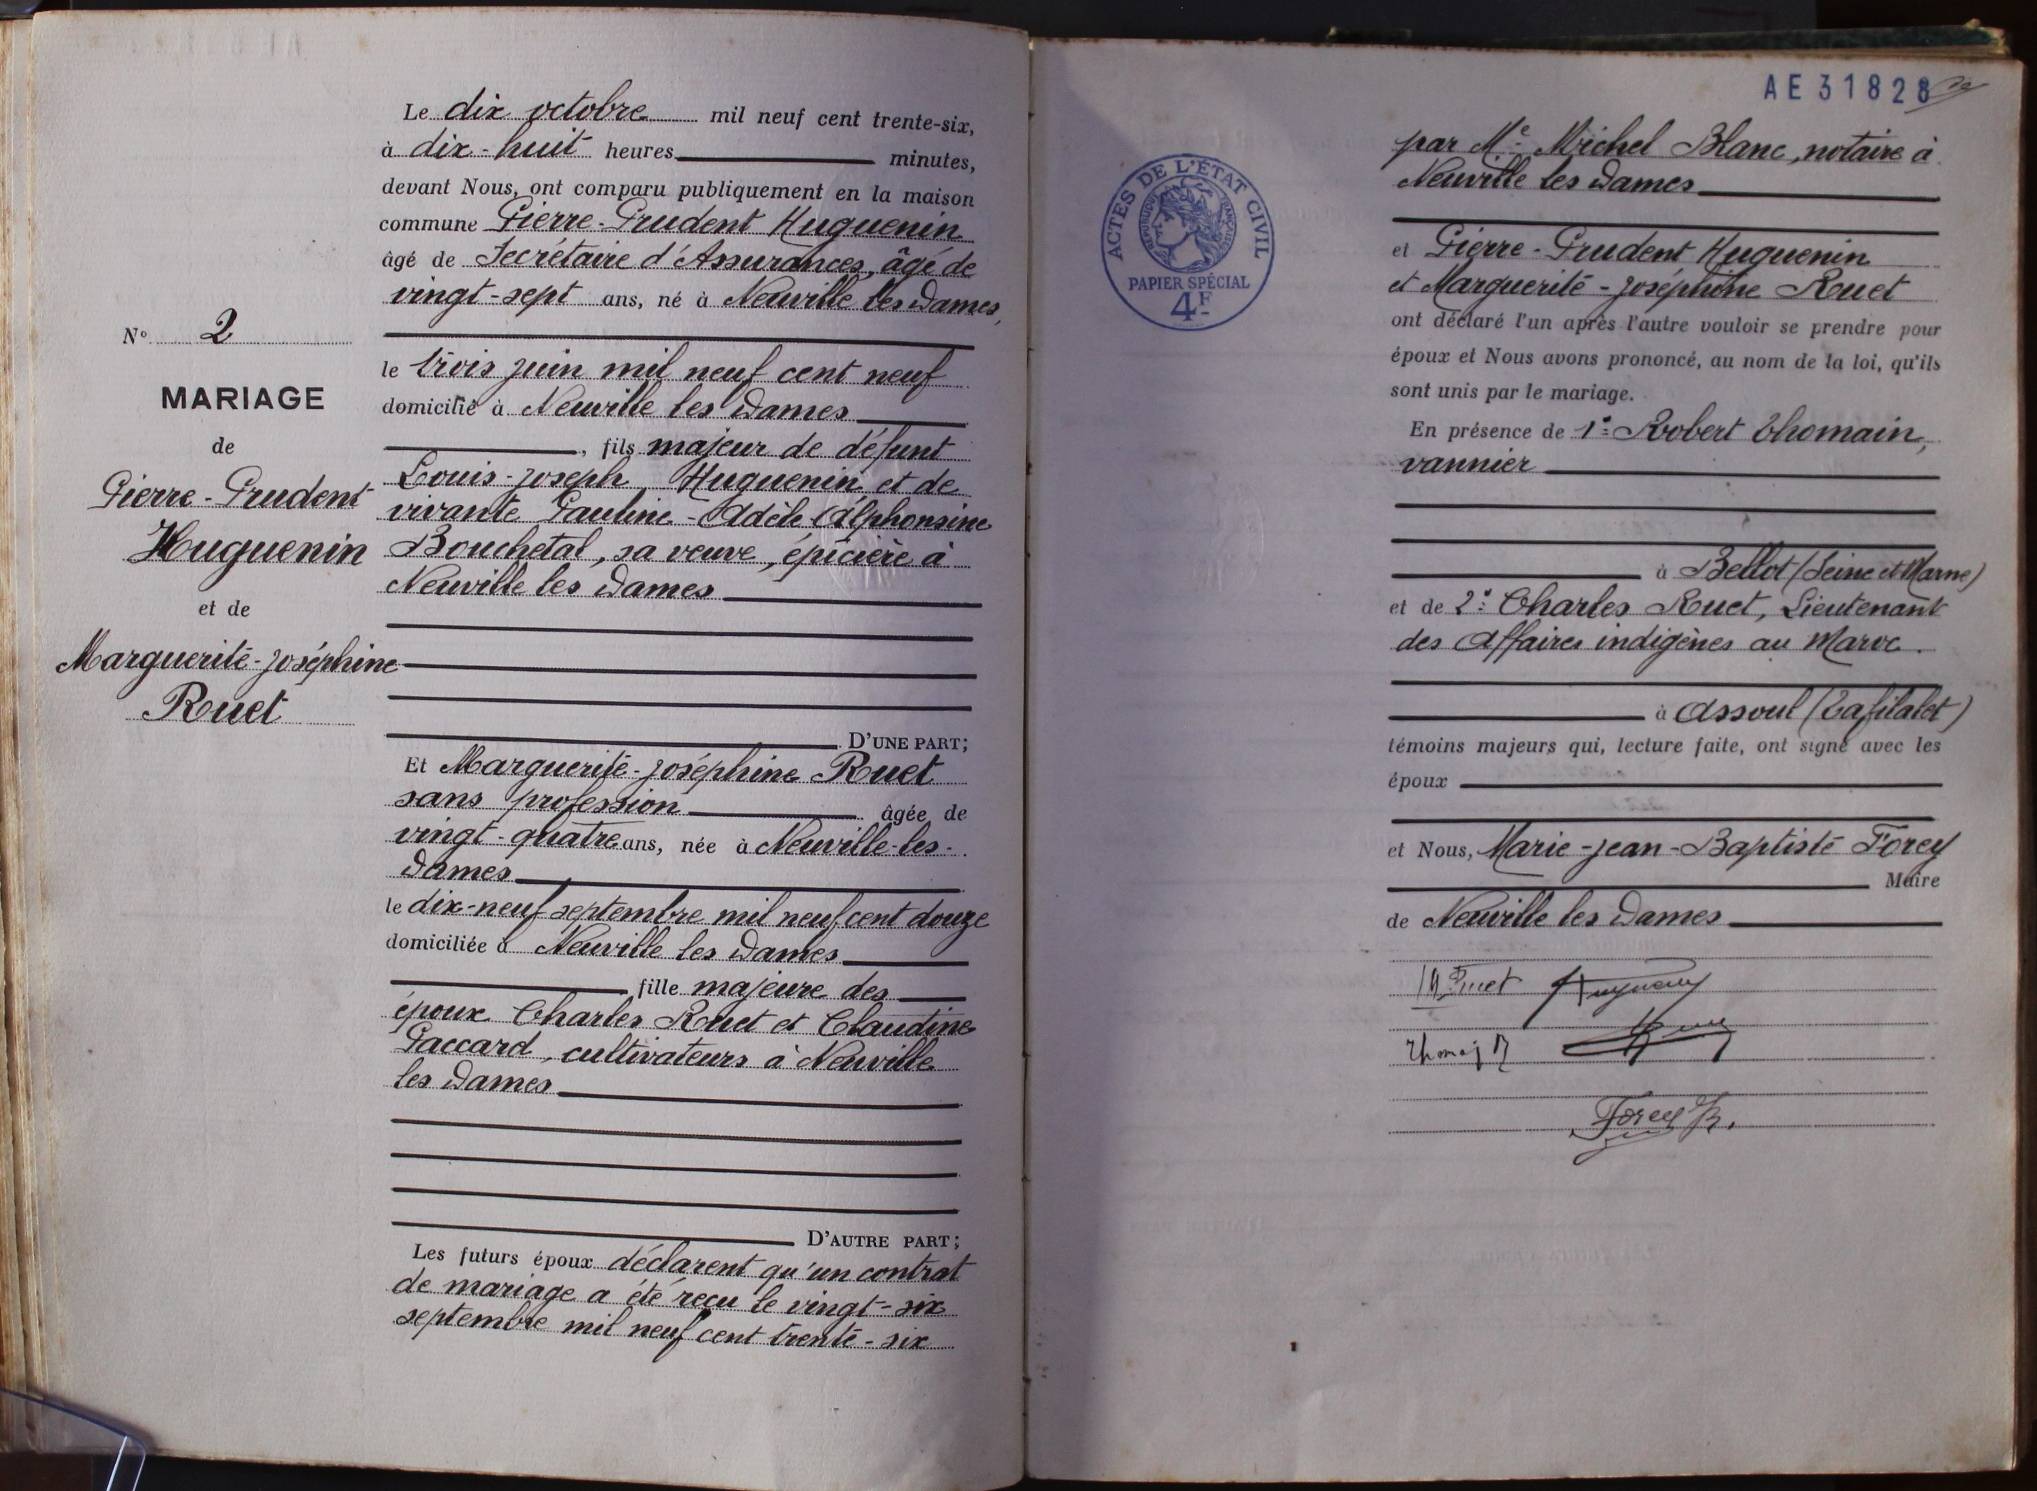 N° 2
MARIAGE
de
Pierre-Prudent
Huguenin
et de
Marguerite-Joséphine
Ruet
Le dix octobre mil neuf cent trente-six,
à dix-huit heures minutes,
devant Nous, ont comparu publiquement en la maison
commune Pierre-Prudent Huguenin
âgé de Secrétaire d'Assurances, âgé de
vingt-sept ans, né à Neuville les Dames,
le trois juin mil neuf cent neuf
domicilié à Neuville les Dames
, fils majeur de défunt
Louis-Joseph Huguenin et de
vivante Pauline-Adèle Alphonsine
Bouchetal, sa veuve, épicière à
Neuville les Dames
D'UNE PART;
Et Marguerite-Joséphine Ruet
sans profession âgée de
vingt-quatre ans, née à Neuville-les-
Dames
le dix-neuf septembre mil neuf cent douze
domiciliée à Neuville les Dames
fille majeure des
époux Charles Ruet et Claudine
Paccard, cultivateurs à Neuville
les Dames
D'AUTRE PART;
Les futurs époux déclarent qu'un contrat
de mariage a été reçu le vingt-six
septembre mil neuf cent trente-six
AE 31828
ACTES DE L'ÉTAT CIVIL
RÉPUBLIQUE FRANÇAISE
PAPIER SPÉCIAL
4F
par Me Michel Blanc, notaire à
Neuville les Dames
et Pierre-Prudent Huguenin
et Marguerite-Joséphine Ruet
ont déclaré l'un après l'autre vouloir se prendre pour
époux et Nous avons prononcé, au nom de la loi, qu'ils
sont unis par le mariage.
En présence de 1° Robert Thomain,
vannier
à Bellot (Seine et Marne)
et de 2° Charles Ruet, Lieutenant
des Affaires indigènes au Maroc.
à Assoul (Tafilalet)
témoins majeurs qui, lecture faite, ont signé avec les
époux
et Nous, Marie-Jean-Baptiste Forey
Maire
de Neuville les Dames
M Ruet Huguenin
Forey B.